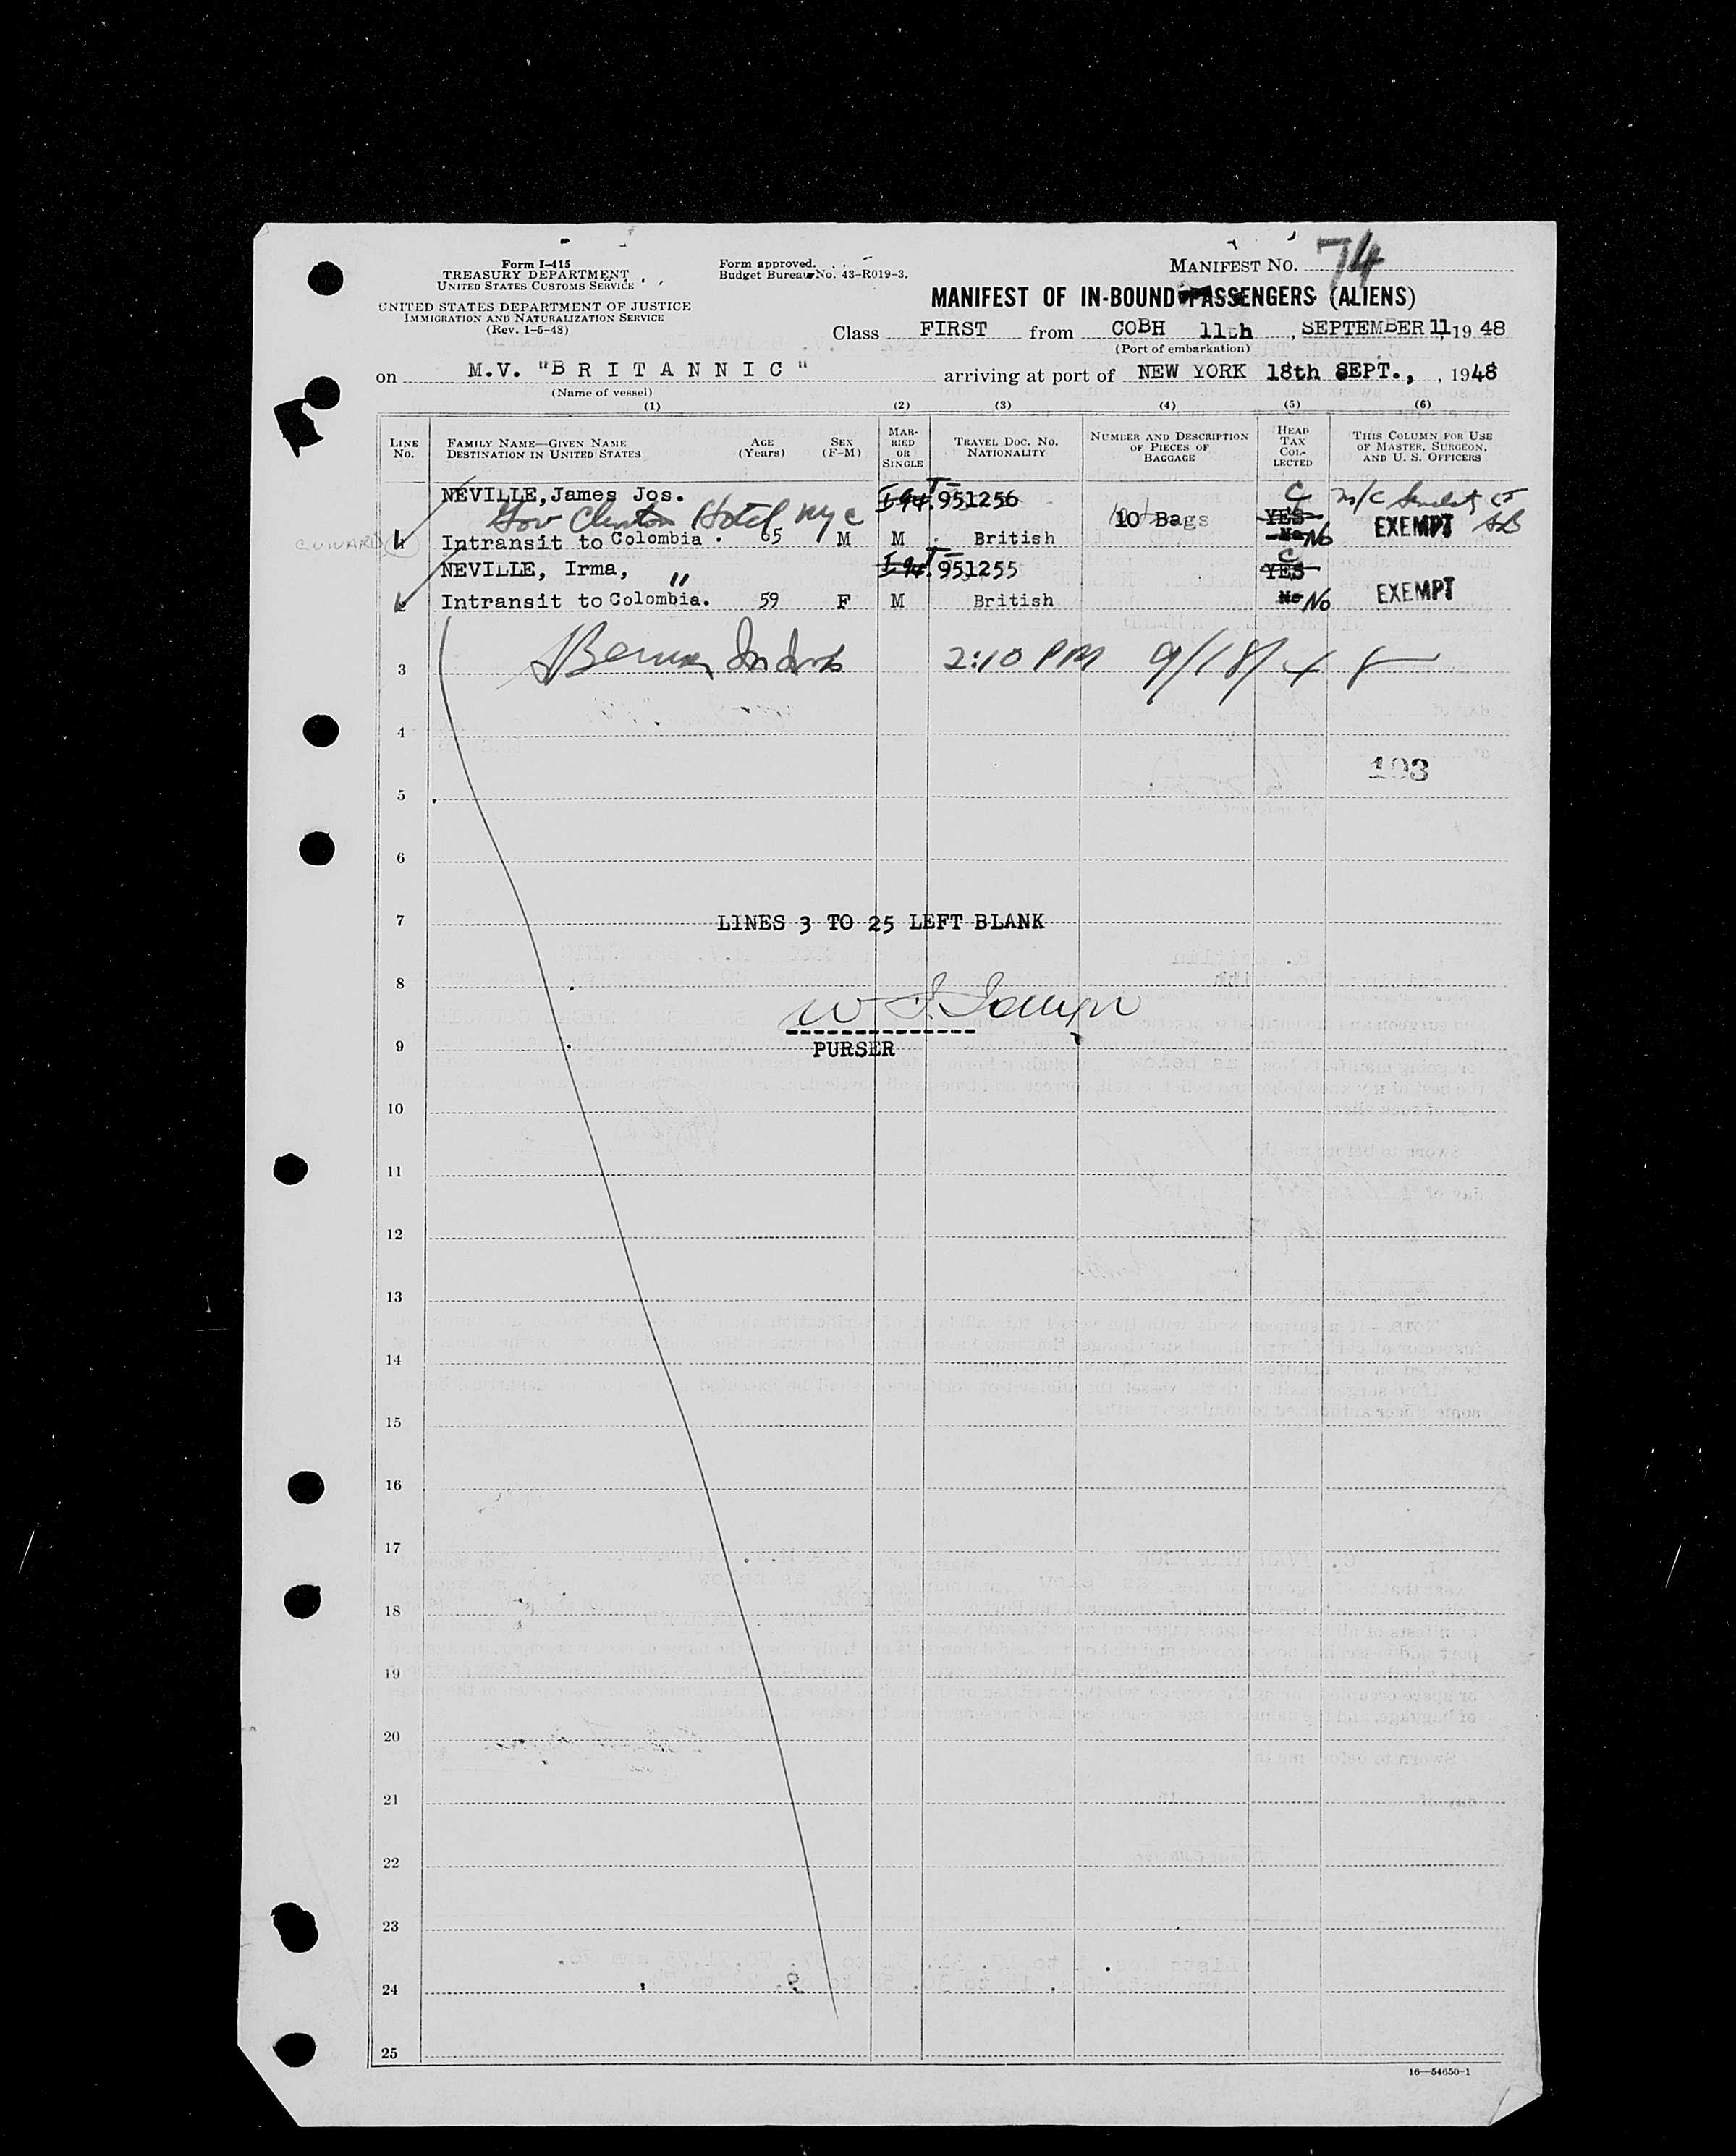 Form I-415
TREASURY DEPARTMENT
UNITED STATES CUSTOMS SERVICE
UNITED STATES DEPARTMENT OF JUSTICE
IMMIGRATION AND NATURALIZATION SERVICE
(Rev. 1-5-48)
Form approved.
Budget Bureau No. 43-R019-3.
MANIFEST No. 74
MANIFEST OF IN-BOUND PASSENGERS (ALIENS)
Class FIRST from COBH 11th, SEPTEMBER 11, 1948
(Port of embarkation)
on M.V. "BRITANNIC" arriving at port of NEW YORK 18th SEPT., , 1948
(Name of vessel)
(1) (2) (3) (4) (5) (6)
LINE No.
FAMILY NAME—GIVEN NAME
DESTINATION IN UNITED STATES
AGE (Years)
SEX (F-M)
MARRIED OR SINGLE
TRAVEL DOC. No. NATIONALITY
NUMBER AND DESCRIPTION OF PIECES OF BAGGAGE
HEAD TAX COLLECTED
THIS COLUMN FOR USE OF MASTER, SURGEON, AND U. S. OFFICERS
NEVILLE, James Jos. I 94. T- 951256 C
Gov Clinton Hotel NYC 10 Bags YES EXEMPT
CUNARD 1 Intransit to Colombia. 65 M M British No No
NEVILLE, Irma, I 94. T- 951255 C YES
"
Intransit to Colombia. 59 F M British No No EXEMPT
3 2:10 PM 9/18/48
4
193
5
6
7 LINES 3 TO 25 LEFT BLANK
8
9 PURSER
10
11
12
13
14
15
16
17
18
19
20
21
22
23
24
25
16—54650-1